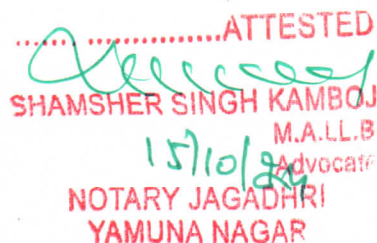 .....................ATTESTED
SHAMSHER SINGH KAMBOJ
M.A.LL.B
15/10/24
Advocate
NOTARY JAGADHRI
YAMUNA NAGAR